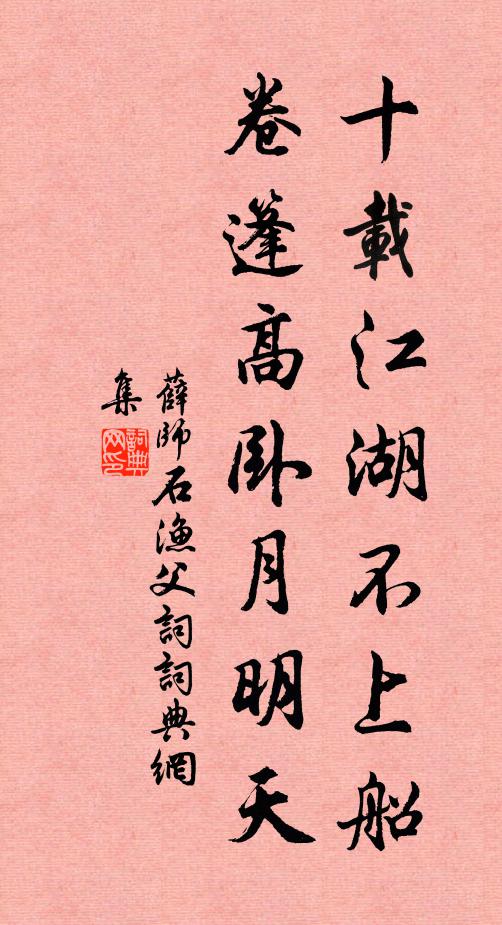 十載江湖不上船
卷篷高卧月明天
薛師石漁父詞詞典網
集
詞典網印